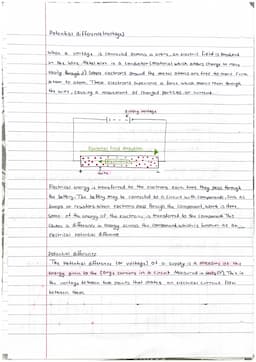 Potential difference (voltage)
When a voltage is connected across a wire, an electric field is produced
in the wire. Metal wire is a conductor (material which allows charge to move
easily through it). Some electrons around the metal atoms are free to move from
atom to atom. These electrons experience a force which moves them through
the wire, causing a movement of charged particles or current.
Supply voltage
Electric field direction
+
-
Electrical energy is transferred to the electrons each time they pass through
the battery. The battery may be connected to a circuit with components, such as
lamps or resistors. When electrons pass through the component, work is done.
Some of the energy of the electrons is transferred to the component. This
causes a difference in energy across the component, which is known as an
electrical potential difference
Potential difference
The potential difference (or voltage) of a supply is a measure of the
energy given to the charge carriers in a circuit. Measured in volts (V). This is
the voltage between two points that makes an electrical current flow
between them.